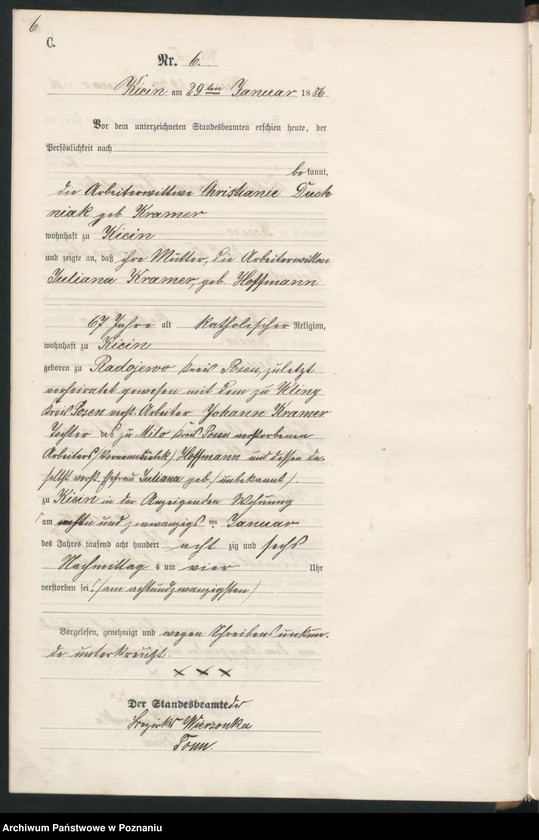 6
C.
Nr. 6.
Kicin am 29ten Januar 1886
Vor dem unterzeichneten Standesbeamten erschien heute, der
Persönlichkeit nach
be kannt,
die Arbeiterwittwe Christianie Duch
niak geb Kramer
wohnhaft zu Kicin
und zeigte an, daß ihre Mutter, die Arbeiterwittwe
Juliana Kramer, geb. Hoffmann
67 Jahre alt Katholischer Religion,
wohnhaft zu Kicin
geboren zu Radojewo Kreis Posen, zuletzt
verheiratet gewesen mit dem zu Kling
Kreis Posen verst. Arbeiter Johann Kramer
Tochter des zu Kreis Posen verstorbenen
Arbeiters Hoffmann und dessen da-
selbst verst. Ehefrau Juliana geb. (unbekannt).
zu Kicin in der Anzeigenden Wohnung
am achtundzwanzigs ten Januar
des Jahres tausend acht hundert acht zig und sechs
Nachmittag s um vier Uhr
verstorben sei! (am achtundzwanzigsten)
Vorgelesen, genehmigt und wegen Schreibensunkun-
de unterkreuzt.
x x x
Der Standesbeamte des
Bezirks Wierzonka
Tonn.
Archiwum Państwowe w Poznaniu